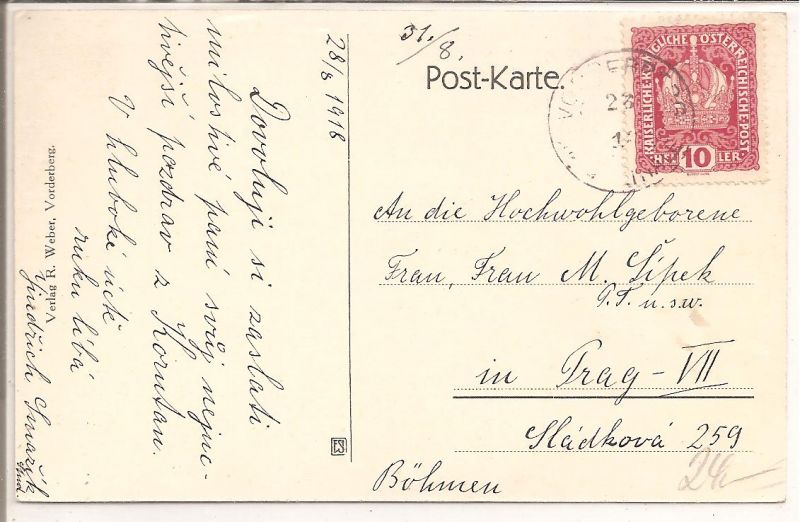 28/8 1918
Dovoluji si zaslati
milostivé paní svůj nejuc-
tivější pozdrav z Korutan.
V hluboké úctě
ruku líbá
Jindřich Smařík
Verlag R. Weber, Vorderberg.
31./8.
Post-Karte.
KAISERLICHE KÖNIGLICHE ÖSTERREICHISCHE POST
HEL 10 LER
An die Hochwohlgeborene
Frau, Frau M. Šípek
P.T. u.s.w.
in Prag-VII
Sládková 259
Böhmen
24